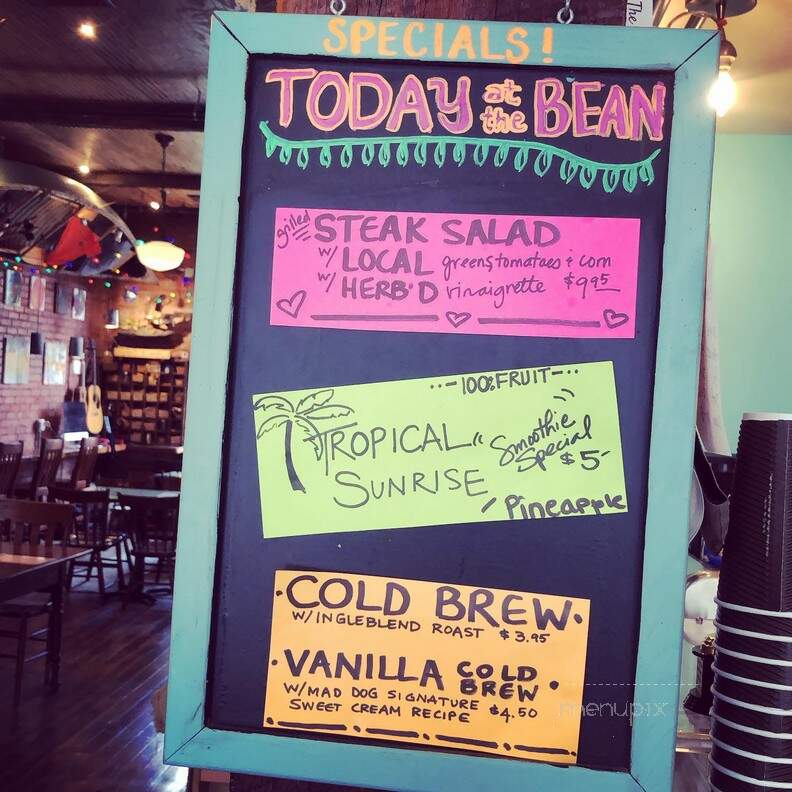 The
SPECIALS!
TODAY at the BEAN
grilled STEAK SALAD
w/ LOCAL greens tomatoes & corn
w/ HERB'D vinaigrette $9.95
100% FRUIT
TROPICAL SUNRISE
Smoothie Special $5-
Pineapple
COLD BREW
W/INGLEBLEND ROAST $3.95
VANILLA COLD BREW
W/MAD DOG SIGNATURE $4.50
SWEET CREAM RECIPE
menupix